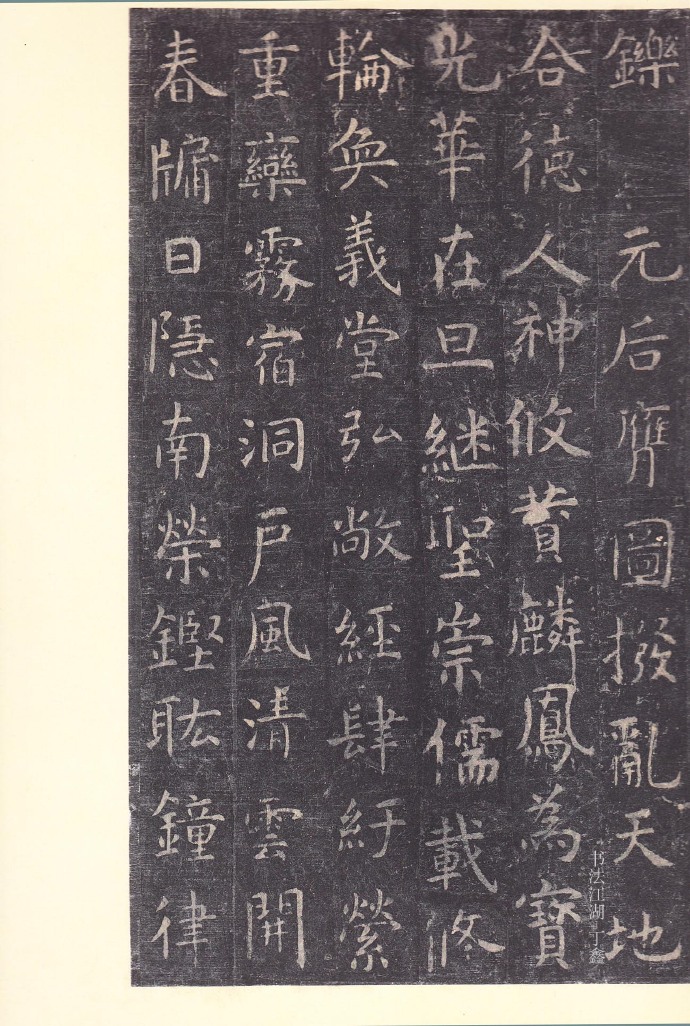 鑠 元后膺圖撥亂天地
合德人神攸贊麟鳳為寶
光華在旦継聖崇儒載修
輪奐義堂弘敞經肆紆縈
重欒霧宿洞戶風清雲開
春牖日隱南榮鏗耾鐘律
书法江湖 丁鑫